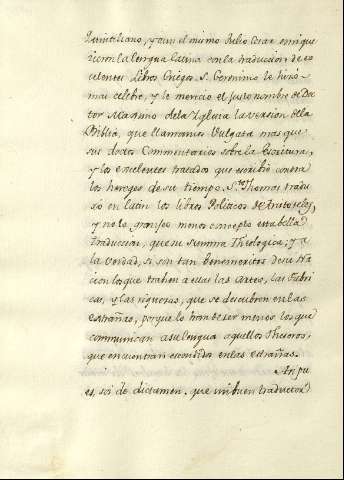 Quintiliano, y aun el mismo Julio Cesar enrique
cieron la Lengua Latina con la traduccion de ex
celentes Libros Griegos. S. Geronimo le hizo
mas celebre, y le merecio el justo nombre de Doc
tor Maximo de la Yglesia la version de la
Biblia, que llamamos Vulgata mas que
sus doctos Commentarios sobre la Escritura,
y los excelentes tratados que escribio contra
los hereges de su tiempo. Sto. Thomas tradu
xo en latin los libros Politicos de Aristoteles,
y no le grangeo menos concepto esta bella
traduccion, que su Summa Theologica; y a
la verdad, si son tan benemeritos de su Na
cion los que trahen a ellas las Artes, las Fabri
cas, y las riquezas, que se descubren en las
estrañas, porque lo han de ser menos los que
communican a su lengua aquellos Thesoros,
que encuentran escondidos en las estrañas.
Asi pu
es, soi de dictamen, que un buen traductor